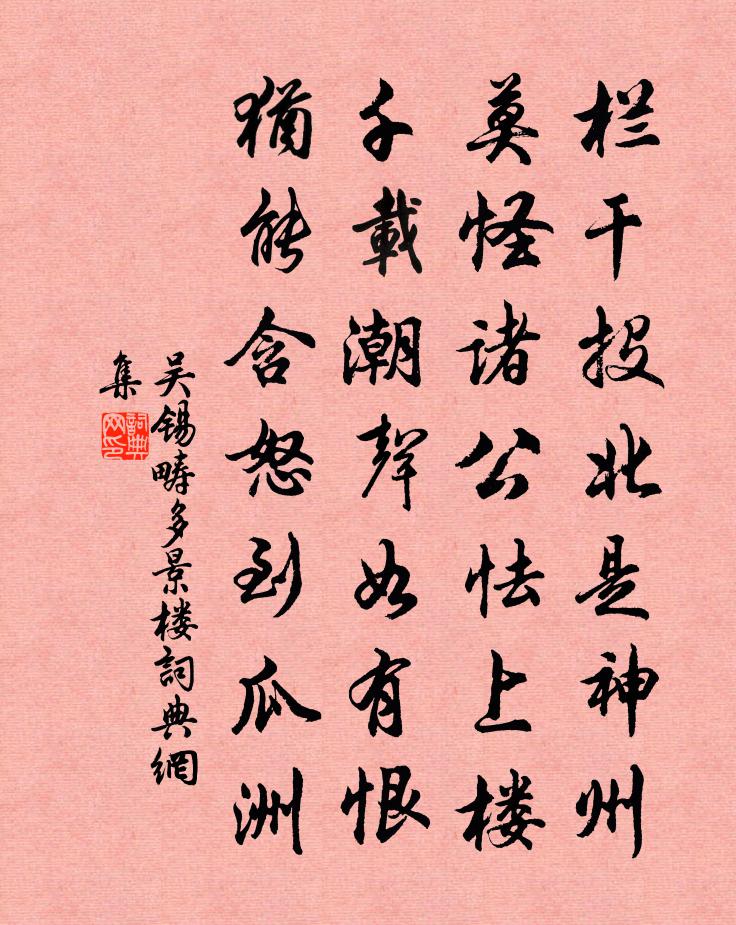 栏干投北是神州
莫怪诸公怯上楼
千載潮聲如有恨
猶能含怒到瓜洲
吴锡畴多景楼詞典網
集
詞典
网印